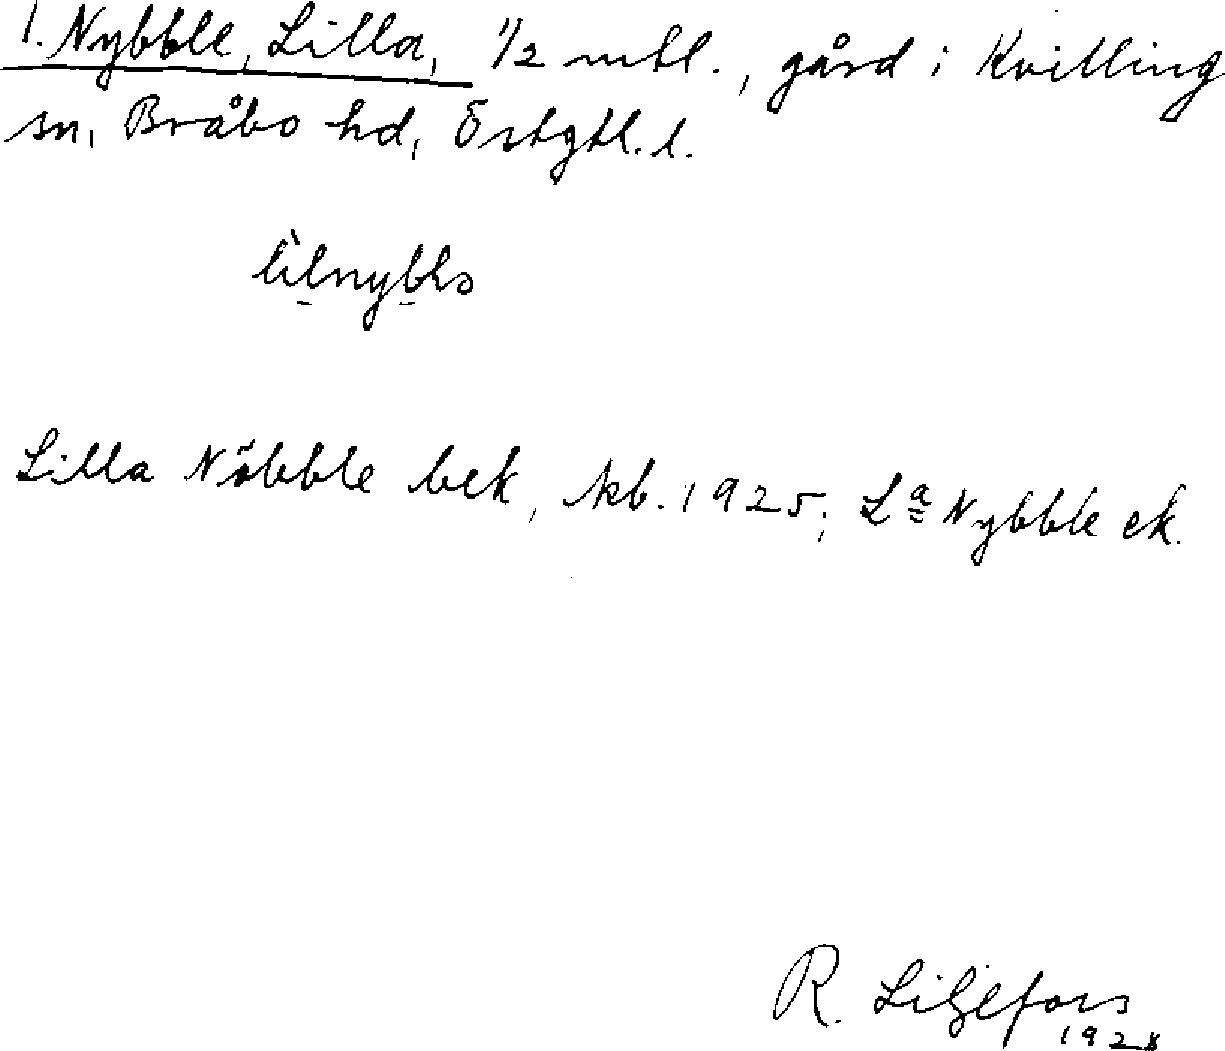 1. Nybble, Lilla, 1/2 mtl., gård i Kvilling
sn, Bråbo hd, Östgtl. l.
Lilla Nöbble bek, kb. 1925; La Nybble ek.
R. Liljefors
1928